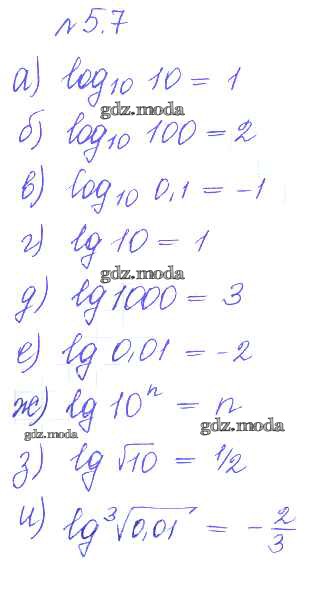 №5.7
а) log₁₀ 10 = 1
gdz.moda
б) log₁₀ 100 = 2
в) log₁₀ 0,1 = -1
г) lg 10 = 1
gdz.moda
д) lg 1000 = 3
е) lg 0,01 = -2
ж) lg 10ⁿ = n
gdz.moda gdz.moda
з) lg √10 = 1/2
и) lg ³√0,01 = - 2/3